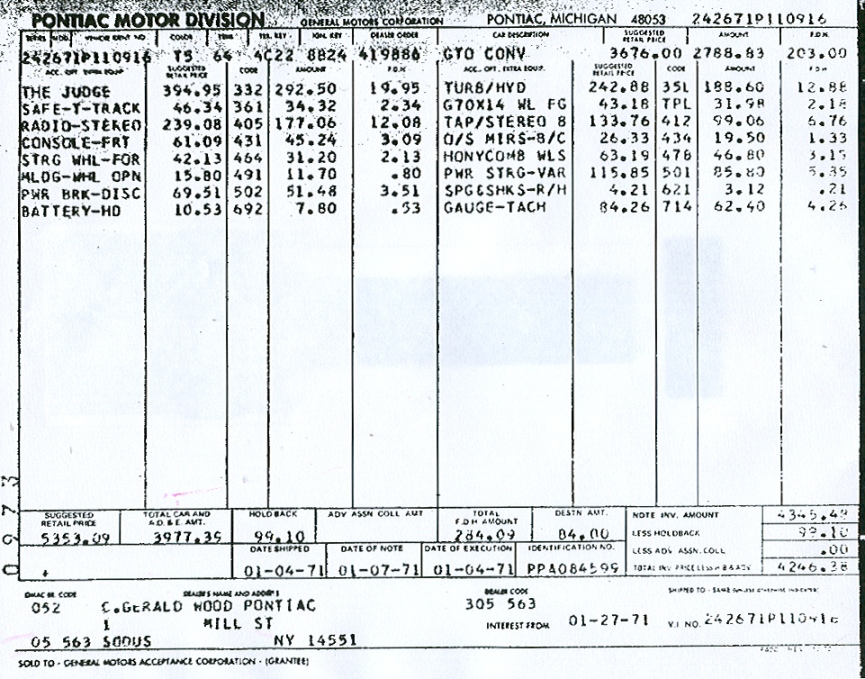 PONTIAC MOTOR DIVISION GENERAL MOTORS CORPORATION PONTIAC, MICHIGAN 48053 242671P110916
SERIES MOD. VEHICLE IDENT NO. COLOR TRIM TRK. KEY IGN. KEY DEALER ORDER CAR DESCRIPTION SUGGESTED RETAIL PRICE AMOUNT F.D.H.
242671P110916 TS 64 4C22 8824 419886 GTO CONV 3676.00 2788.83 203.00
ACC. OPT. EXTRA EQUIP. SUGGESTED RETAIL PRICE CODE AMOUNT F.D.H. ACC. OPT. EXTRA EQUIP. SUGGESTED RETAIL PRICE CODE AMOUNT F.D.H.
THE JUDGE 394.95 332 292.50 19.95 TURB/HYD 242.88 35L 188.60 12.88
SAFE-T-TRACK 46.34 361 34.32 2.34 G70X14 WL FG 43.18 TPL 31.98 2.18
RADIO-STEREO 239.08 405 177.06 12.08 TAP/STEREO 8 133.76 412 99.06 6.76
CONSOLE-FRT 61.09 431 45.24 3.09 O/S MIRS-B/C 26.33 434 19.50 1.33
STRG WHL-FOR 42.13 464 31.20 2.13 HONYCOMB WLS 63.19 478 46.80 3.15
MLDG-WHL OPN 15.80 491 11.70 .80 PWR STRG-VAR 115.85 501 85.80 5.35
PWR BRK-DISC 69.51 502 51.48 3.51 SPG&SHKS-R/H 4.21 621 3.12 .21
BATTERY-HD 10.53 692 7.80 .53 GAUGE-TACH 84.26 714 62.40 4.26
SUGGESTED RETAIL PRICE TOTAL CAR AND A.O. & E. AMT. HOLD BACK ADV ASSN COLL AMT TOTAL F.D.H AMOUNT DESTN. AMT. NOTE INV. AMOUNT 4345.49
5353.09 3977.39 99.10 284.09 84.00 LESS HOLDBACK 99.10
DATE SHIPPED DATE OF NOTE DATE OF EXECUTION IDENTIFICATION NO. LESS ADV. ASSN. COLL .00
01-04-71 01-07-71 01-04-71 PPA084599 TOTAL INV PRICE LESS H B & ADV 4246.38
GMAC BR. CODE DEALER'S NAME AND ADDRESS DEALER CODE SHIPPED TO - SAME UNLESS OTHERWISE INDICATED
052 C.GERALD WOOD PONTIAC 305 563
1 MILL ST INTEREST FROM 01-27-71 V.I NO. 242671P110916
05 563 SODUS NY 14551
SOLD TO - GENERAL MOTORS ACCEPTANCE CORPORATION - (GRANTEE)